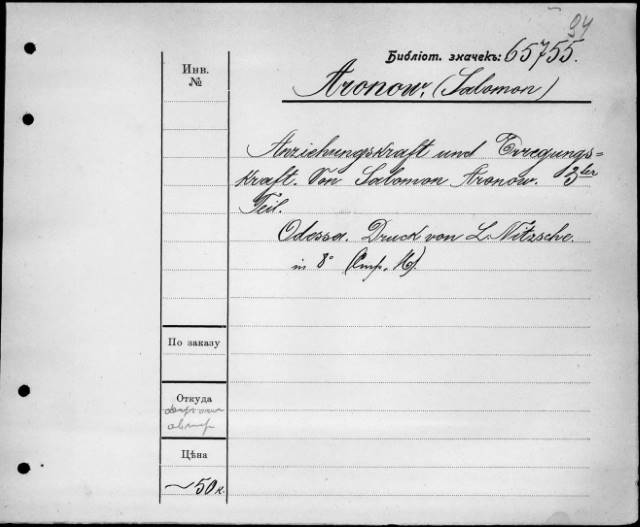 94
Библіот. значекъ: 65755.
Инв.
№
Aronow. (Salomon)
Anziehungskraft und Erregungs=
kraft. Von Salomon Aronow. 3ter
Teil.
Odessa. Druck von L. Nitzsche.
in 8° (Стр. 16).
По заказу
Откуда
автор
Цѣна
~50 к.